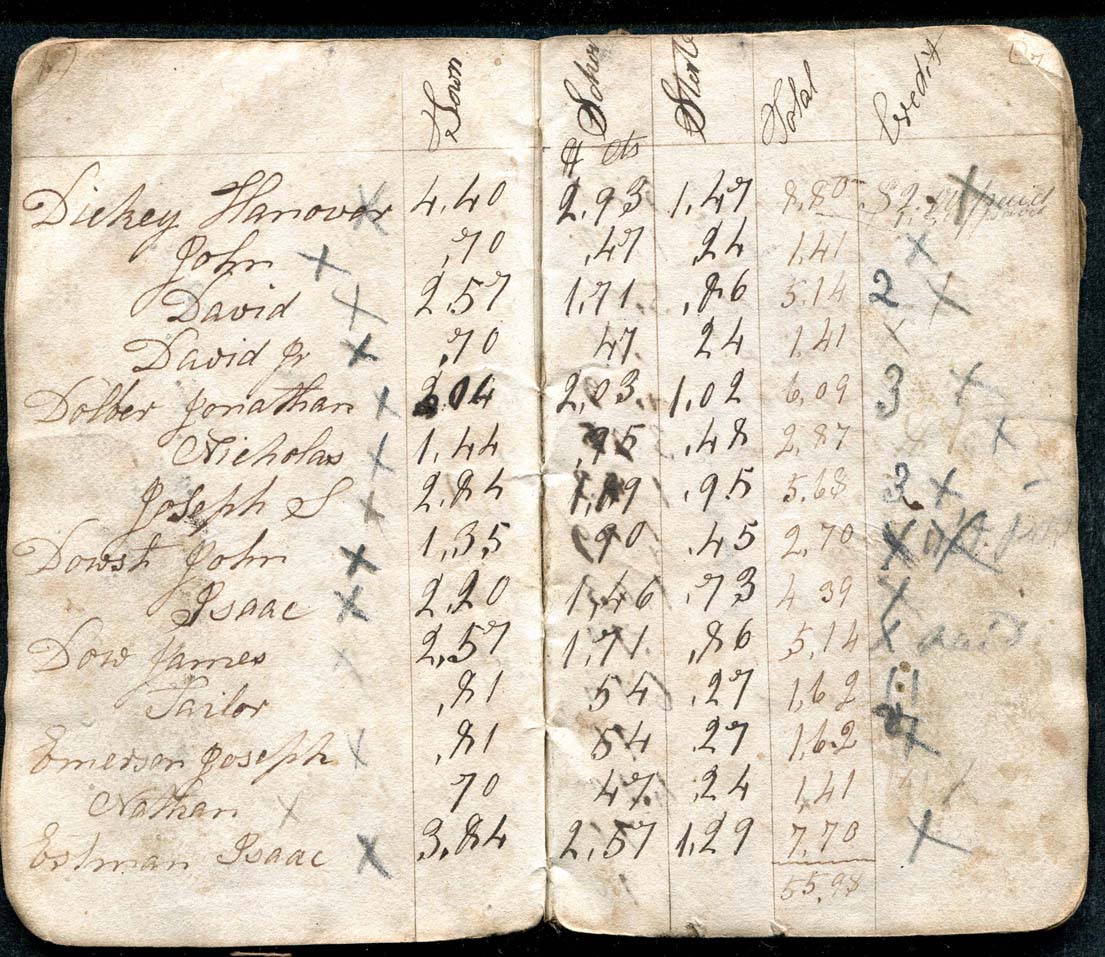 Town School State Total Credit
$ cts
Dickey Hanover X 4,40 2,93 1,47 8,80 X paid
John X ,70 ,47 ,24 1,41 X
David X 2,57 1,71 ,86 5,14 2 X
David Jr X ,70 47 24 1,41 X
Dolber Jonathan X 3 04 2,03 1,02 6,09 3 X
Nicholas X 1,44 ,95 ,48 2,87 X
Joseph S X 2,84 1,89 ,95 5,68 3 X
Dowst John X 1,35 90 .45 2,70 X
Isaac X 2,20 1,46 ,73 4 39 X
Dow James X 2,57 1,71 ,86 5,14 X paid
Tailor ,81 54 ,27 1,62
Emerson Joseph X ,81 54 27 1,62 X
Nathan X 70 47 ,24 1,41
Estman Isaac X 3,84 2,57 1,29 7,70 X
55,98